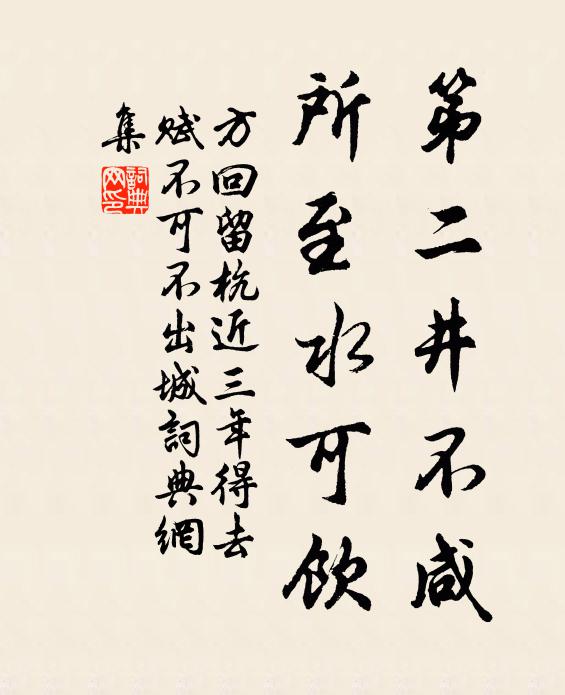 第二井不咸
所至水可飲
方回留杭近三年得去
賦不可不出城詞典網
集
詞典
网印